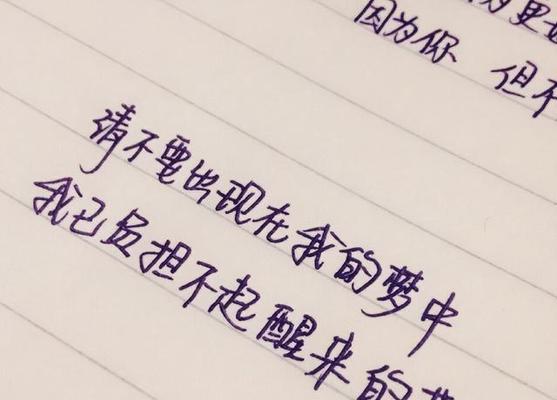 因为你 但不
请不要出现在我的梦中
我已负担不起醒来的